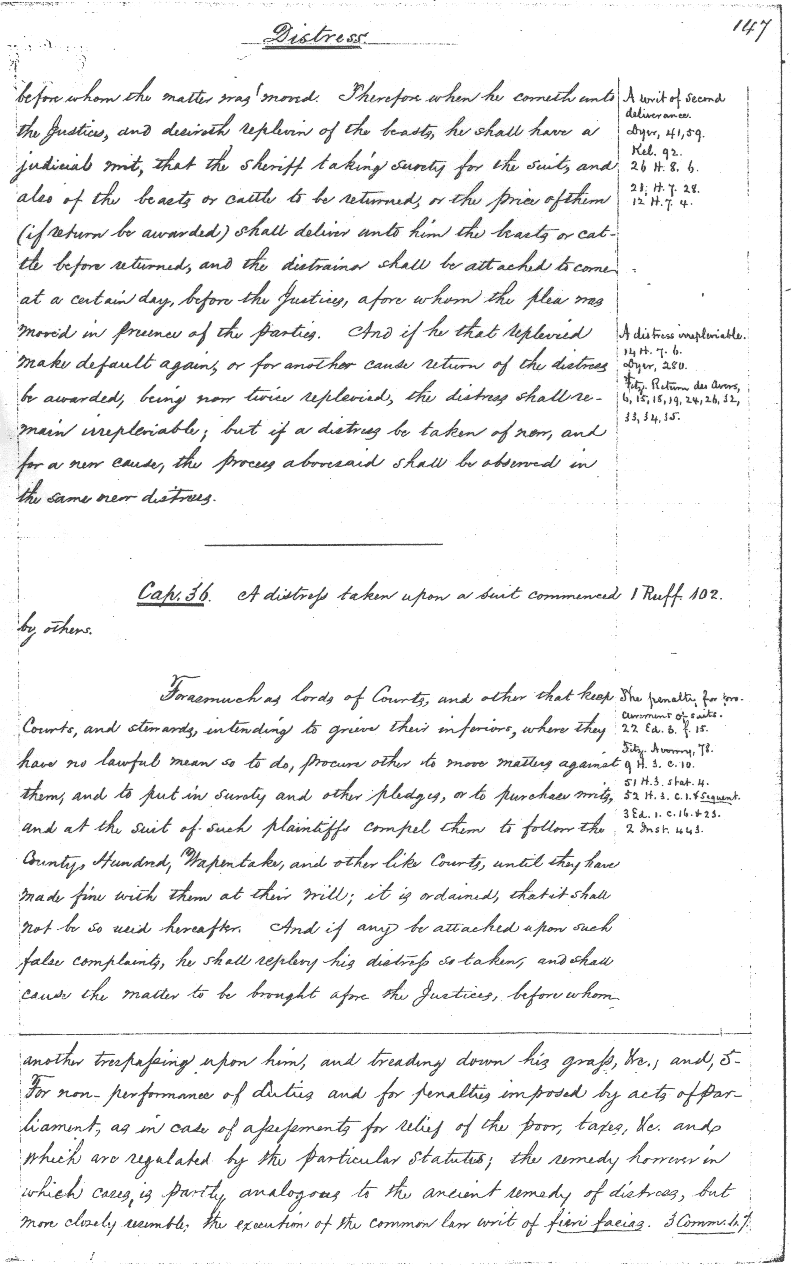 147
Distress.
before whom the matter was moved. Therefore when he cometh unto
the Justices, and desireth replevin of the beasts, he shall have a
judicial writ, that the sheriff taking surety for the suit, and
also of the beasts or cattle to be returned, or the price of them
(if return be awarded) shall deliver unto him the beasts or cat-
tle before returned, and the distrainor shall be attached to come
at a certain day, before the Justices, afore whom the plea was
moved in presence of the parties. And if he that replevied
make default again, or for another cause return of the distress
be awarded, being now twice replevied, the distress shall re-
main irrepleviable; but if a distress be taken of new, and
for a new cause, the process abovesaid shall be observed in
the same new distress.
A writ of second
deliverance.
Dyer, 41, 59.
Kel. 92.
26 H. 8. 6.
21. H. 7. 28.
12 H. 7. 4.
A distress irrepleviable.
14 H. 7. 6.
Dyer, 280.
Fitz. Return des Avers,
6, 15, 18, 19, 24, 26, 32,
33, 34, 35.
Cap. 36. A distress taken upon a suit commenced
by others.
1 Ruff. 102.
Forasmuch as lords of Courts, and other that keep
Courts, and stewards, intending to grieve their inferiors, where they
have no lawful mean so to do, procure other to move matters against
them, and to put in surety and other pledges, or to purchase writs,
and at the suit of such plaintiffs compel them to follow the
County, Hundred, Wapentake, and other like Courts, until they have
made fine with them at their will; it is ordained, that it shall
not be so used hereafter. And if any be attached upon such
false complaints, he shall replevy his distress so taken, and shall
cause the matter to be brought afore the Justices, before whom
The penalty for pro-
curement of suits.
22 Ed. 3. f. 15.
Fitz. Avowry, 78.
9 H. 3. c. 10.
51 H. 3. stat. 4.
52 H. 3. c. 1. & sequent.
3 Ed. 1. c. 16. & 23.
2 Inst. 443.
another trespassing upon him, and treading down his grass, &c.; and, 5-
For non-performance of duties and for penalties imposed by acts of Par-
liament, as in case of assessments for relief of the poor, taxes, &c. and
which are regulated by the particular statutes; the remedy however in
which cases, is partly analogous to the ancient remedy of distress, but
more closely resembles the execution of the common law writ of fieri facias. 3 Comm.